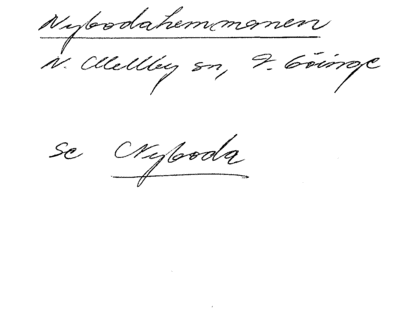 Nybodahemmanen
N. Mellby sn, V. Göinge
Se Nyboda